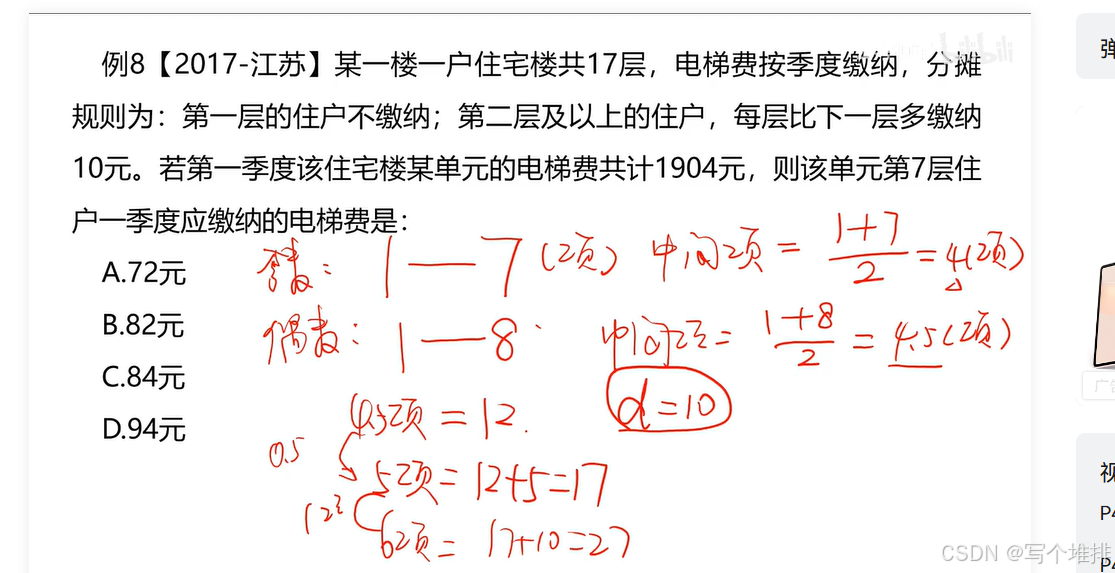 bilibili
弹
例8【2017-江苏】某一楼一户住宅楼共17层，电梯费按季度缴纳，分摊
规则为：第一层的住户不缴纳；第二层及以上的住户，每层比下一层多缴纳
10元。若第一季度该住宅楼某单元的电梯费共计1904元，则该单元第7层住
户一季度应缴纳的电梯费是：
奇数： 1—7(项) 中间项 = (1+7)/2 = 4(项)
A.72元
B.82元
偶数： 1—8 中间项 = (1+8)/2 = 4.5(项)
C.84元
广告
4.5项 = 12. d=10
D.94元
0.5
5项 = 12+5=17
视
1项
P4
6项 = 17+10=27
CSDN @写个堆排
P4